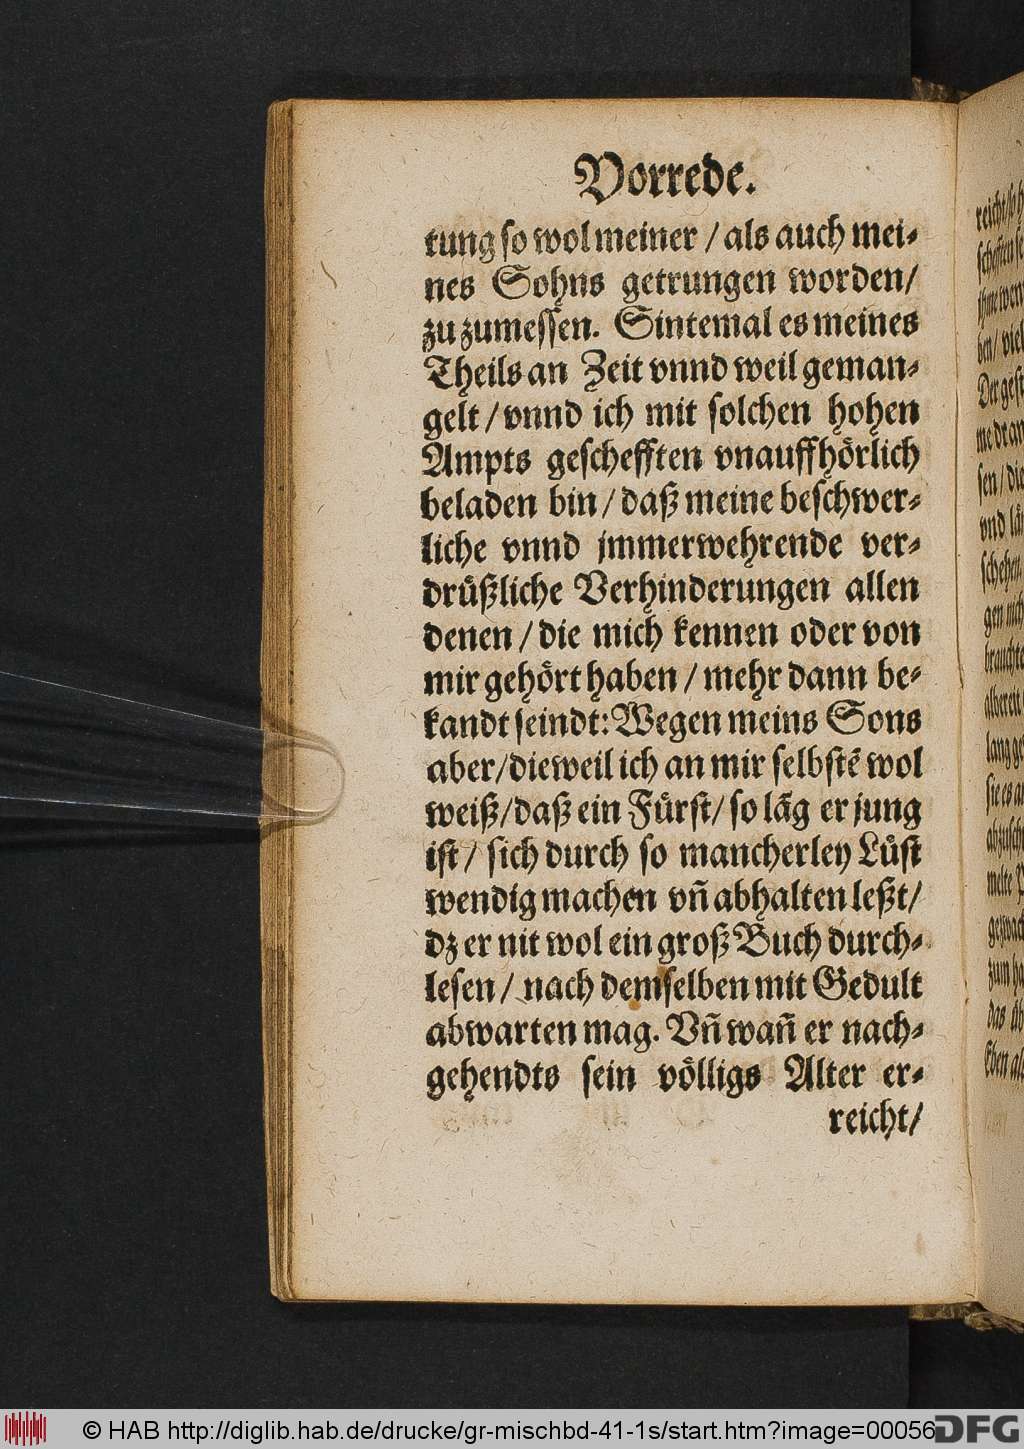 Vorrede.
tung so wol meiner / als auch mei⸗
nes Sohns getrungen worden/
zu zumessen. Sintemal es meines
Theils an Zeit vnnd weil geman⸗
gelt / vnnd ich mit solchen hohen
Ampts geschefften vnauffhörlich
beladen bin / daß meine beschwer⸗
liche vnnd jmmerwehrende ver⸗
drüßliche Verhinderungen allen
denen / die mich kennen oder von
mir gehört haben / mehr dann be⸗
kandt seindt: Wegen meins Sons
aber/ dieweil ich an mir selbstē wol
weiß/ daß ein Fürst/ so lāg er jung
ist / sich durch so mancherley Lüst
wendig machen vñ abhalten leßt/
dz er nit wol ein groß Buch durch⸗
lesen / nach demselben mit Gedult
abwarten mag. Vñ wañ er nach⸗
gehendts sein völligs Alter er⸗
reicht/
© HAB http://diglib.hab.de/drucke/gr-mischbd-41-1s/start.htm?image=00056
DFG